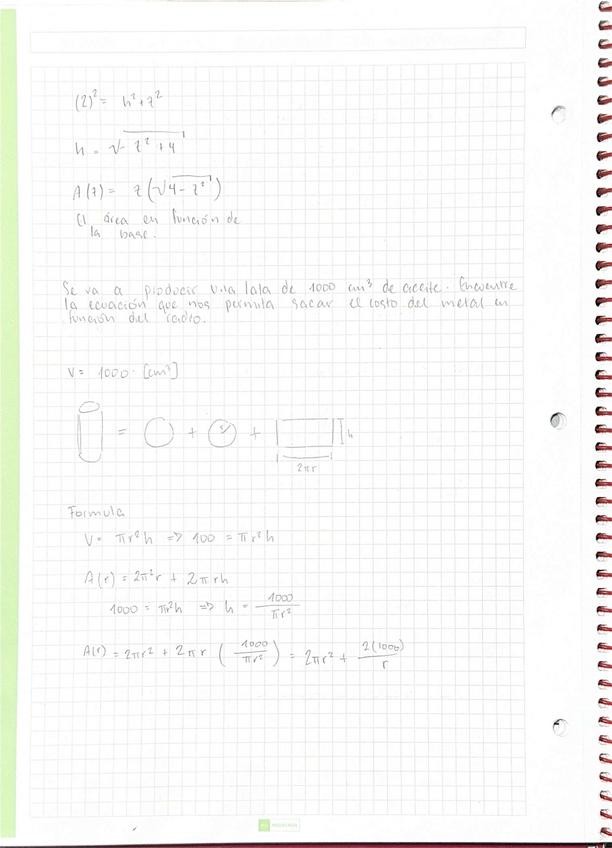 (2)² = h² + z²
h = √-z² + 4
A(z) = z (√4 - z²)
El área en función de
la base.
Se va a producir una lata de 1000 cm³ de aceite. Encuentre
la ecuación que nos permita sacar el costo del metal en
función del radio.
V = 1000 [cm³]
= + + h
2πr
Formula
V = πr²h => 100 = πr²h
A(r) = 2π²r + 2πrh
1000 = πr²h => h = 1000/πr²
A(r) = 2πr² + 2πr (1000/πr²) = 2πr² + 2(1000)/r